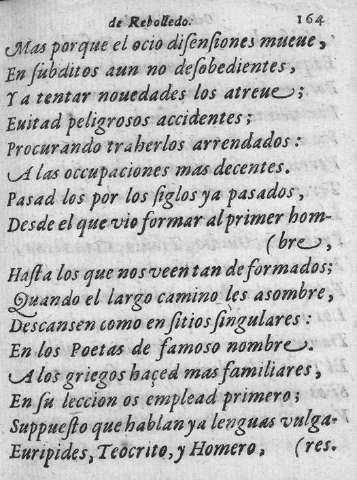 de Rebolledo. 164
Mas porque el ocio disensiones mueue,
En subditos aun no desobedientes,
Y a tentar nouedades los atreue;
Euitad peligrosos accidentes;
Procurando traherlos arrendados:
A las occupaciones mas decentes.
Pasad los por los siglos ya pasados,
Desde el que vio formar al primer hom-
(bre,
Hasta los que nos veen tan deformados;
Quando el largo camino les asombre,
Descansen como en sitios singulares:
En los Poetas de famoso nombre.
A los griegos haçed mas familiares,
En su leccion os emplead primero;
Suppuesto que hablan ya lenguas vulga-
Euripides, Teocrito, y Homero, (res.